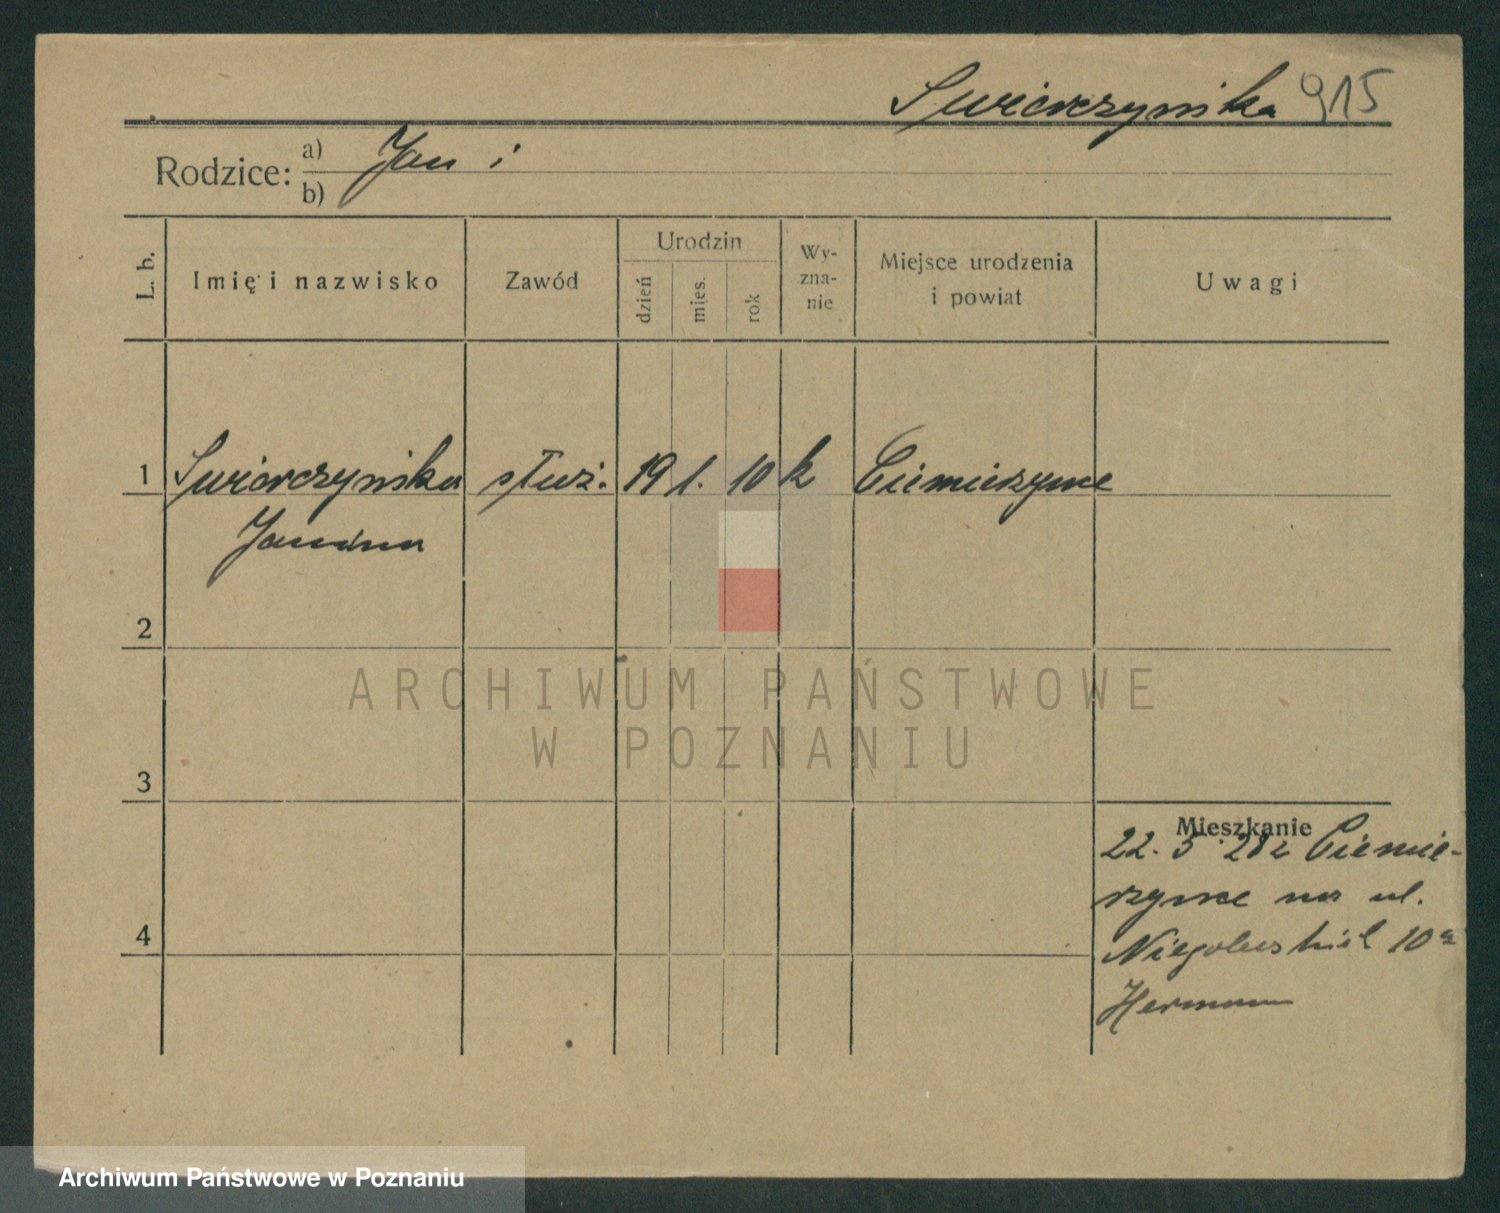 Swierczynska 915
Rodzice: a) Jan i
b)
L. b.
Imię i nazwisko
Zawód
Urodzin
dzień
mies.
rok
Wy-
zna-
nie
Miejsce urodzenia
i powiat
Uwagi
1 Swierczynska służ. 19 1. 10 k
Janina
2
3
4
Mieszkanie
22. 5 28 z
na ul.
10a
Herman
ARCHIWUM PAŃSTWOWE
W POZNANIU
Archiwum Państwowe w Poznaniu